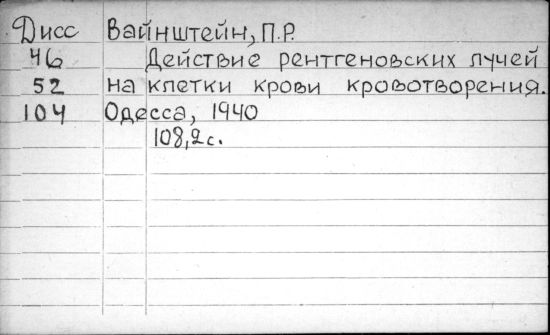 Дисс Вайнштейн, П.Р.
46 Действие рентгеновских лучей
52 на клетки крови кровотворения.
104 Одесса, 1940
108,2с.